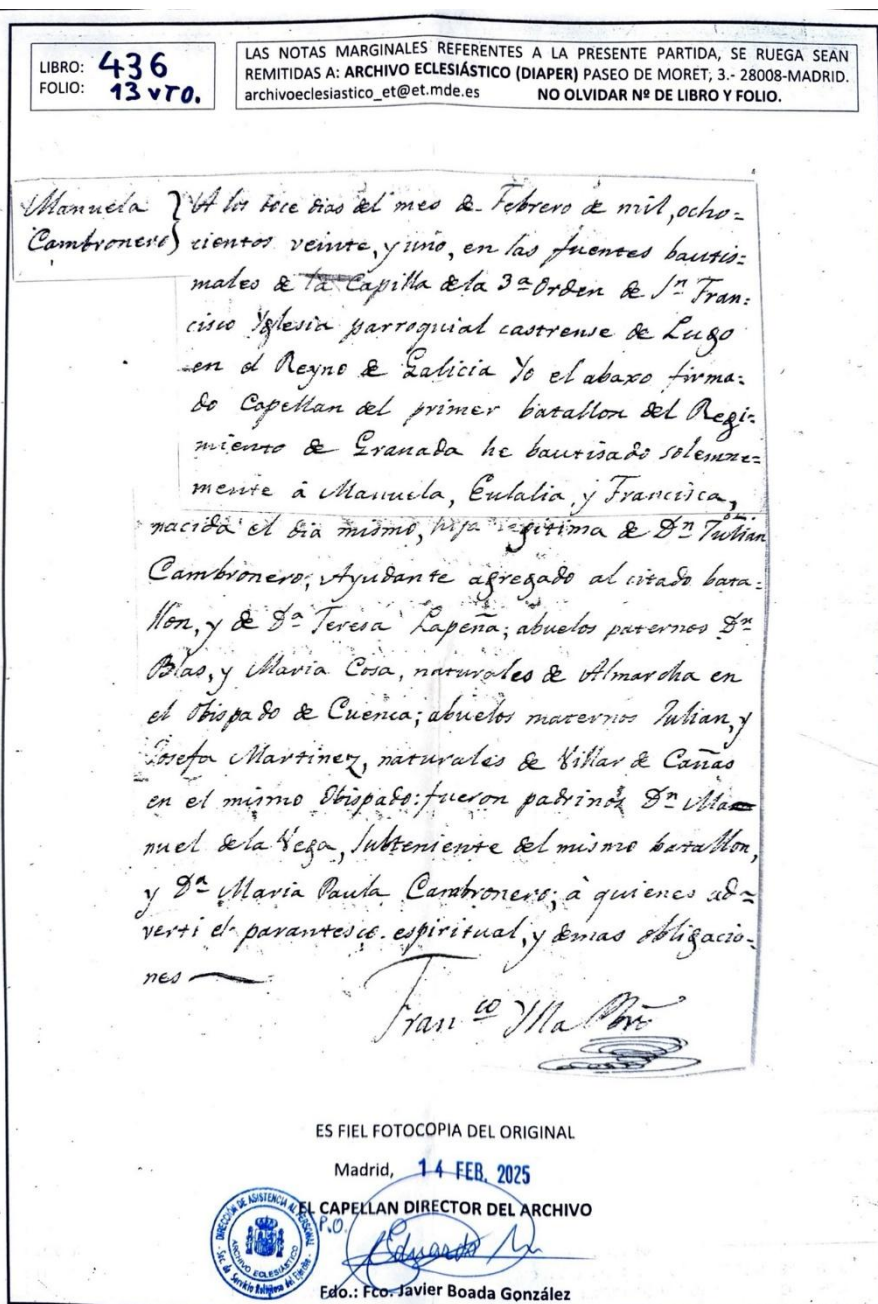 LIBRO: 436
FOLIO: 13 VTO.
LAS NOTAS MARGINALES REFERENTES A LA PRESENTE PARTIDA, SE RUEGA SEAN
REMITIDAS A: ARCHIVO ECLESIÁSTICO (DIAPER) PASEO DE MORET, 3.- 28008-MADRID.
archivoeclesiastico_et@et.mde.es NO OLVIDAR Nº DE LIBRO Y FOLIO.
Manuela
Cambronero
A los doce dias del mes de Febrero de mil, ocho=
cientos veinte, y uno, en las fuentes bautis=
males de la Capilla dela 3ª Orden de Sn Fran=
cisco Yglesia parroquial castrense de Lugo
en el Reyno de Galicia Yo el abaxo firma=
do Capellan del primer batallon del Regi=
miento de Granada he bautisado solemne=
mente á Manuela, Eulalia, y Francisca,
nacida el dia mismo, hija legitima de Dn Julian
Cambronero, Ayudante agregado al citado bata=
llon, y de Dª Teresa Lapeña; abuelos paternos Dn
Blas, y Maria Cosa, naturales de Almarcha en
el Obispado de Cuenca; abuelos maternos Julian, y
Josefa Martinez, naturales de Villar de Cañas
en el mismo Obispado: fueron padrinos Dn Ma
nuel dela Vega, Subteniente del mismo batallon,
y Dª Maria Paula Cambronero; á quienes ad=
verti el parantesco espiritual, y demas obligacio=
nes
Franco Ma
ES FIEL FOTOCOPIA DEL ORIGINAL
Madrid, 14 FEB. 2025
EL CAPELLAN DIRECTOR DEL ARCHIVO
P.O.
Eduardo
Fdo.: Fco. Javier Boada González
DIRECCIÓN DE ASISTENCIA AL PERSONAL
ARCHIVO ECLESIÁSTICO